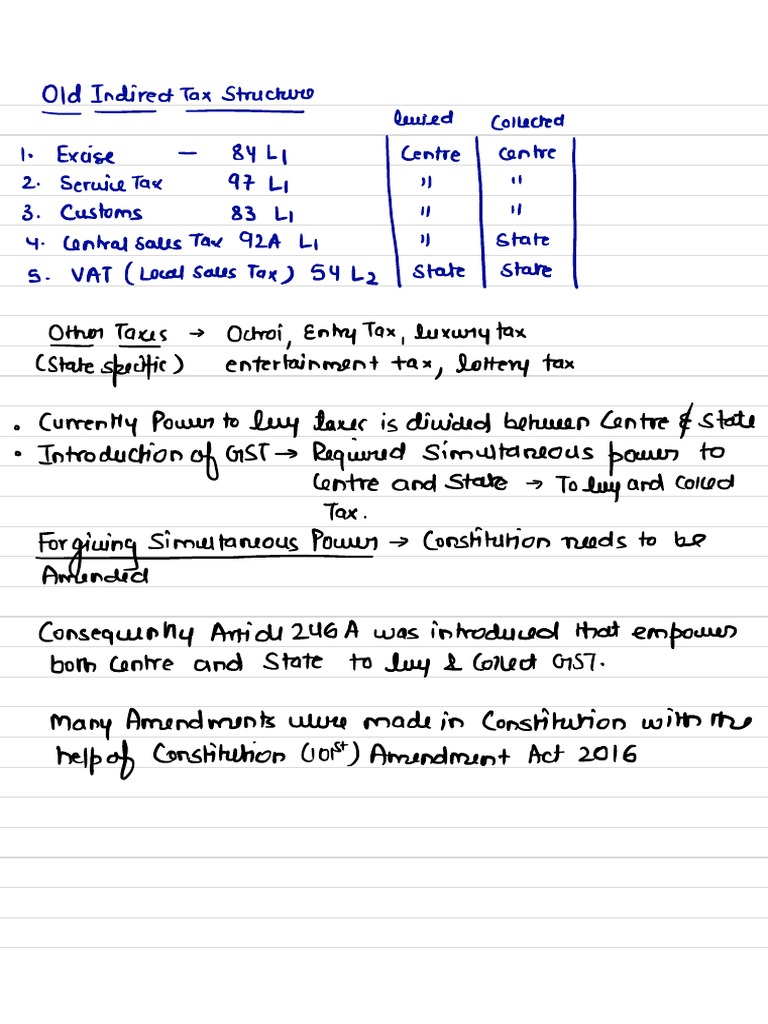 Old Indirect Tax Structure
levied Collected
1. Excise — 84 L1 Centre Centre
2. Service Tax 97 L1 " "
3. Customs 83 L1 " "
4. Central Sales Tax 92A L1 " State
5. VAT (Local Sales Tax) 54 L2 State State
Other Taxes → Octroi, Entry Tax, luxury tax
(State specific) entertainment tax, lottery tax
• Currently Power to levy taxes is divided between Centre & State
• Introduction of GST → Required Simultaneous power to
Centre and State → To levy and Collect
Tax.
For giving Simultaneous Power → Constitution needs to be
Amended
Consequently Article 246A was introduced that empowers
both Centre and State to levy & Collect GST.
Many Amendments were made in Constitution with the
help of Constitution (101st) Amendment Act 2016